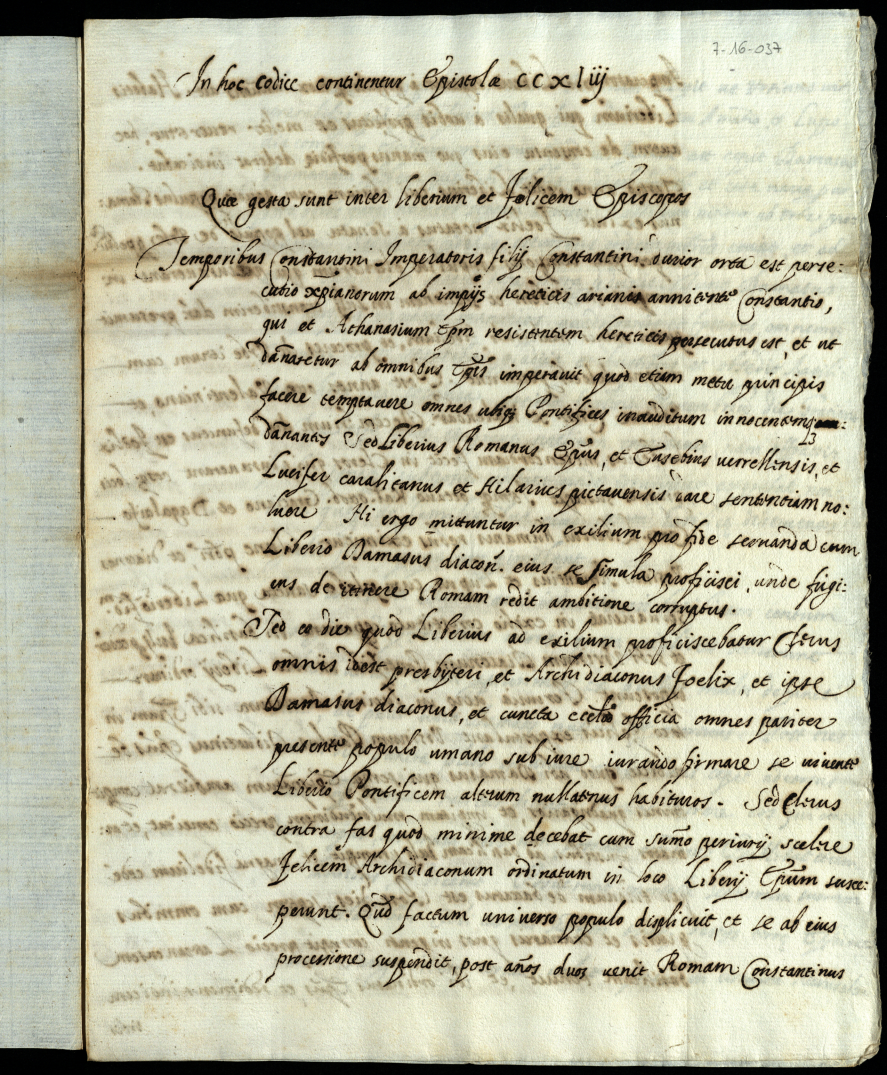 7-16-037
In hoc codice continentur Epistolæ CCXLiij
Quæ gesta sunt inter liberium et Felicem Episcopos
Temporibus Constantini Imperatoris filij Constantini durior orta est perse:
cutio xp̃ianorum ab impijs hereticis arianis annitente Constantio,
qui et Athanasium Ep̃m resistentem hereticis persecutus est, et ut
dãnaretur ab omnibus Ep̃is imperauit quod etiam metu principis
facere temptauere omnes ubiq; Pontifices inauditum innocentemq;
dãnantes Sed Liberius Romanus Ep̃us, et Eusebius verrellensis, et
Lucifer caralitanus et Hilarius pictauensis dare sententiam no:
luere Hi ergo mittuntur in exilium pro fide seruanda cum
Liberio Damasus diacoñ. eius se simula proficisci, unde fugi:
ens de itinere Romam redit ambitione corruptus.
Sed eo die quod Liberius ad exilium proficiscebatur Clerus
omnis idest presbyteri, et Archidiaconus Foelix, et ipse
Damasus diaconus, et cuncta eccl̃iæ officia omnes pariter
presente populo umano sub iure iurando firmare se uiuente
Liberio Pontificem alterum nullatenus habituros. Sed Clerus
contra fas quod minime decebat cum sum̃o periurij scelere
Felicem Archidiaconum ordinatum in loco Liberij Ep̃um susce:
perunt. Quod factum uniuerso populo displicuit, et se ab eius
processione suspendit, post añnos duos uenit Romam Constantinus